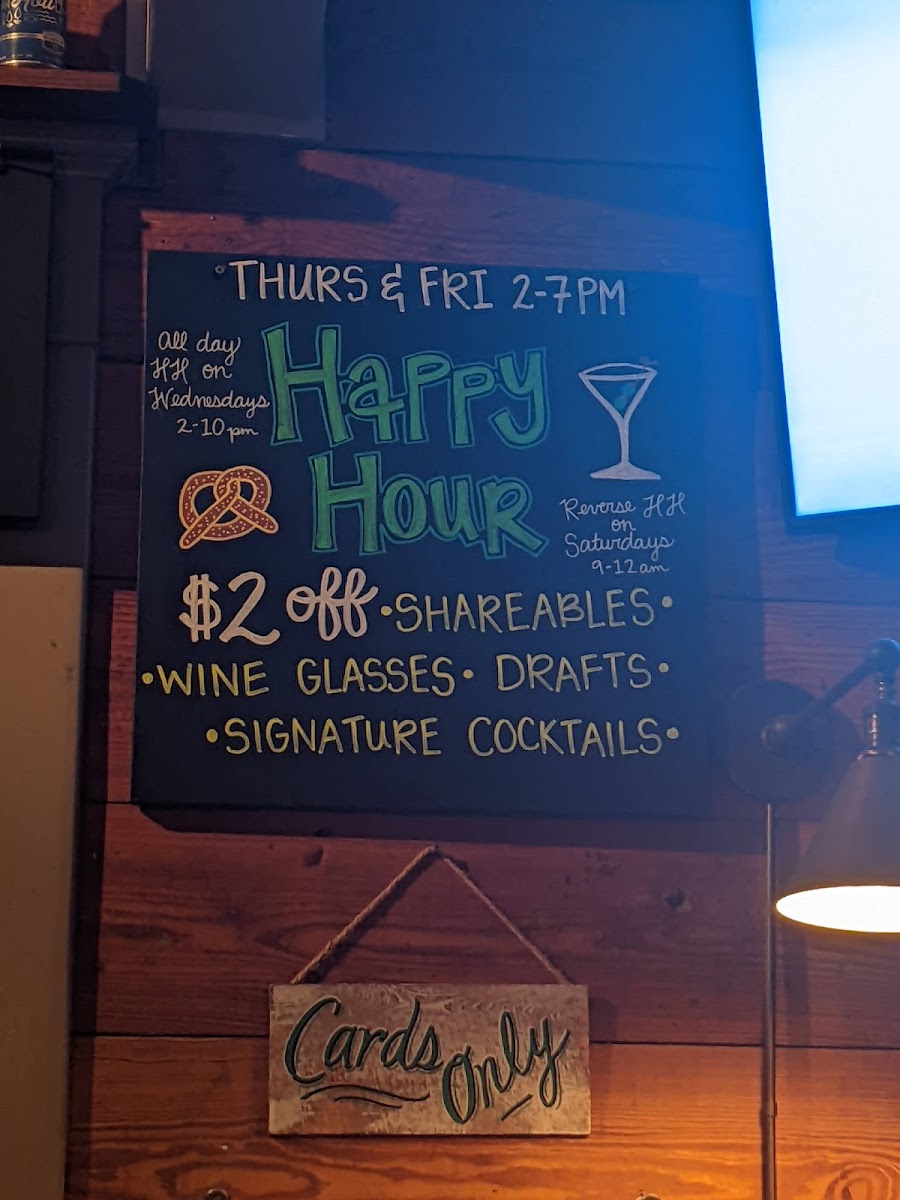 THURS & FRI 2-7PM
All day
HH on
Wednesdays
2-10pm
Happy
Hour
Reverse HH
on
Saturdays
9-12am
$2 off •SHAREABLES•
•WINE GLASSES• DRAFTS•
•SIGNATURE COCKTAILS•
Cards
Only